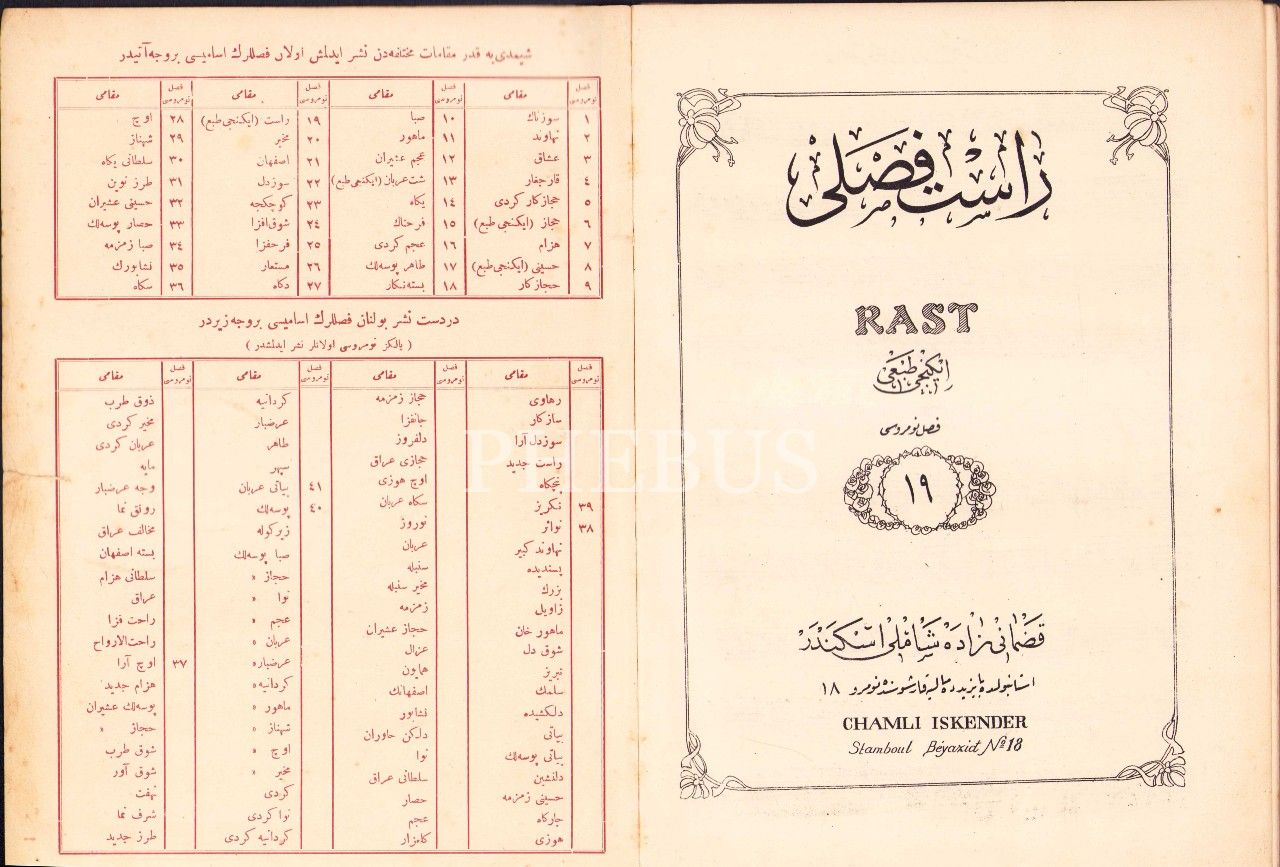 شيمدى‌يه قدر مقامات مختلفه‌دن نشر ايدلمش اولان فصللرك اساميسى بروجه آتيدر
فصل نومروسى مقامى فصل نومروسى مقامى فصل نومروسى مقامى فصل نومروسى مقامى
١ سوزناك ١٠ صبا ١٩ راست (ايكنجى طبع) ٢٨ اوج
٢ نهاوند ١١ ماهور ٢٠ مخير ٢٩ شهناز
٣ عشاق ١٢ عجم عشيران ٢١ اصفهان ٣٠ سلطانى يكاه
٤ قارجغار ١٣ شت عربان (ايكنجى طبع) ٢٢ سوزدل ٣١ طرز نوين
٥ حجازكار كردى ١٤ يكاه ٢٣ كوچكجه ٣٢ حسينى عشيران
٦ حجاز (ايكنجى طبع) ١٥ فرحناك ٢٤ شوق افزا ٣٣ حصار پوسه‌لك
٧ هزام ١٦ عجم كردى ٢٥ فرحفزا ٣٤ صبا زمزمه
٨ حسينى (ايكنجى طبع) ١٧ طاهر پوسه‌لك ٢٦ مستعار ٣٥ نشابورك
٩ حجازكار ١٨ بسته‌نكار ٢٧ دكاه ٣٦ سكاه
دردست نشر بولنان فصللرك اساميسى بروجه زيردر
( يالكز نومروسى اولانلر نشر ايدلمشدر )
فصل نومروسى مقامى فصل نومروسى مقامى فصل نومروسى مقامى فصل نومروسى مقامى
رهاوى حجاز زمزمه كردانيه ذوق طرب
سازكار جانفزا عرضبار مخير كردى
سوزدل آرا دلفروز طاهر عربان كردى
راست جديد حجازى عراق سپهر مايه
پنچكاه اوج هوزى ٤١ بياتى عربان وجه عرضبار
٣٩ نكرز سكاه عربان ٤٠ پوسه‌لك رونق نما
٣٨ نواثر نوروز زيركوله مخالف عراق
نهاوند كبير عربان صبا پوسه‌لك بسته اصفهان
پسنديده سنبله حجاز » سلطانى هزام
بزرك مخير سنبله نوا » عراق
زاويل زمزمه عجم » راحت فزا
ماهور خان حجاز عشيران عربان » راحت‌الارواح
شوق دل عزال عرضبار » ٣٧ اوج آرا
تبريز همايون كردانيه » هزام جديد
سلمك اصفهانك ماهور » پوسه‌لك عشيران
دلكشيده نشابور شهناز » حجاز »
بياتى دلكن حاوران اوج » شوق طرب
بياتى پوسه‌لك نوا مخير » شوق آور
دلنشين سلطانى عراق كردى نهفت
حسينى زمزمه حصار نوا كردى شرف نما
چارگاه عجم كردانيه كردى طرز جديد
هوزى كلعزار
راست فصلى
RAST
ايكنجى طبعى
فصل نومروسى
١٩
قضمانى زاده شاملى اسكندر
استانبولده بايزيدده ماليه قارشوسنده نومرو ١٨
CHAMLI ISKENDER
Stamboul Béyazid Nº 18
PHEBUS